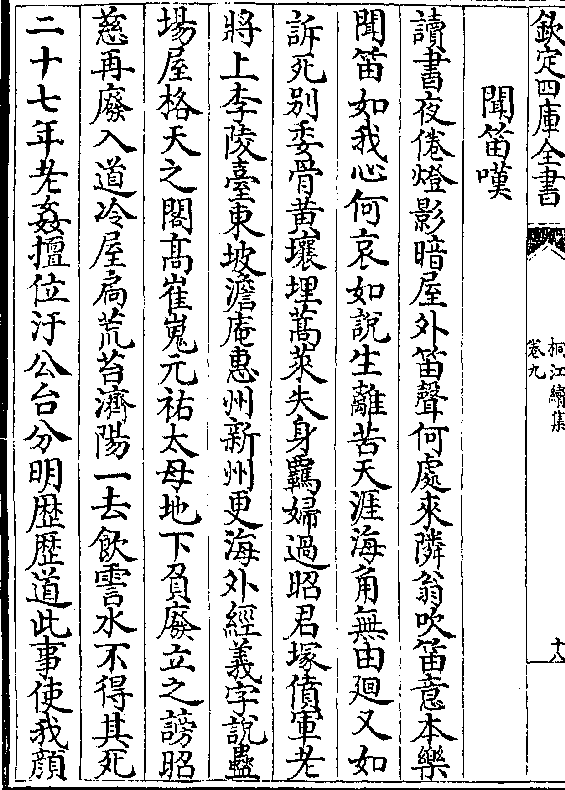 欽定四庫全書
桐江續集
卷九
十八
聞笛嘆
讀書夜倦燈影暗屋外笛聲何處來隣翁吹笛意本樂
聞笛如我心何哀如說生離苦天涯海角無由廻又如
訴死别委骨黄壤埋蒿萊失身羈婦過昭君塚僨軍老
將上李陵臺東坡澹庵惠州新州更海外經義字說蠱
場屋格天之閣髙崔嵬元祐太母地下負廢立之謗昭
慈再廢入道冷屋扃荒苔濟陽一去飲霅水不得其死
二十七年老姦擅位汙公台分明歴歴道此事使我顔